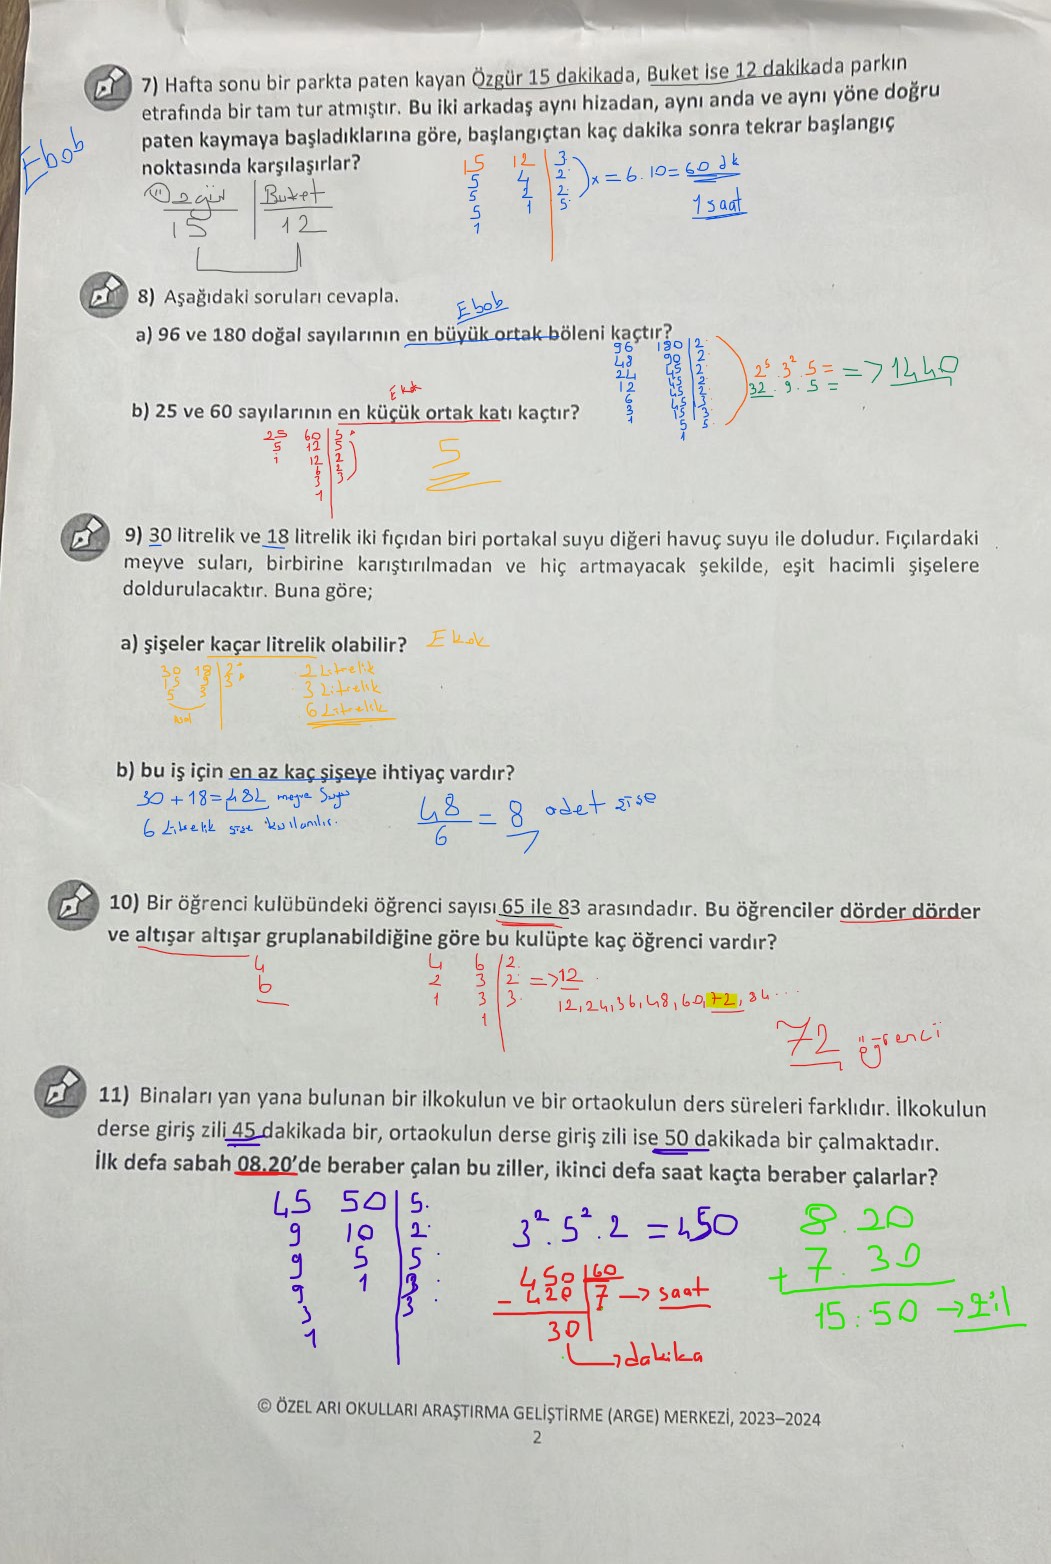 7) Hafta sonu bir parkta paten kayan Özgür 15 dakikada, Buket ise 12 dakikada parkın
etrafında bir tam tur atmıştır. Bu iki arkadaş aynı hizadan, aynı anda ve aynı yöne doğru
paten kaymaya başladıklarına göre, başlangıçtan kaç dakika sonra tekrar başlangıç
noktasında karşılaşırlar?
Ebob
15 12 3
5 4 2
5 2 2
5 1 5
1
x = 6.10 = 60 dk
1 saat
Özgür Buket
15 12
8) Aşağıdaki soruları cevapla.
Ebob
a) 96 ve 180 doğal sayılarının en büyük ortak böleni kaçtır?
96 180 2
48 90 2
24 45 2
12 45 2
6 45 2
3 45 3
1 15 3
5 5
1
2⁵ . 3² . 5 =
32 . 9 . 5 =
=> 1440
Ekok
b) 25 ve 60 sayılarının en küçük ortak katı kaçtır?
25 60 5
5 12 5
1 12 2
6 2
3 3
1
5
9) 30 litrelik ve 18 litrelik iki fıçıdan biri portakal suyu diğeri havuç suyu ile doludur. Fıçılardaki
meyve suları, birbirine karıştırılmadan ve hiç artmayacak şekilde, eşit hacimli şişelere
doldurulacaktır. Buna göre;
a) şişeler kaçar litrelik olabilir? Ekok
30 18 2
15 9 3
5 3
2 Litrelik
3 Litrelik
6 Litrelik
b) bu iş için en az kaç şişeye ihtiyaç vardır?
30 + 18 = 48L meyve Suyu
6 Litrelik şişe kullanılır.
48/6 = 8 adet şişe
10) Bir öğrenci kulübündeki öğrenci sayısı 65 ile 83 arasındadır. Bu öğrenciler dörder dörder
ve altışar altışar gruplanabildiğine göre bu kulüpte kaç öğrenci vardır?
4
6
4 6 2
2 3 2
1 3 3
1
=> 12
12, 24, 36, 48, 60, 72, 84 ...
72 öğrenci
11) Binaları yan yana bulunan bir ilkokulun ve bir ortaokulun ders süreleri farklıdır. İlkokulun
derse giriş zili 45 dakikada bir, ortaokulun derse giriş zili ise 50 dakikada bir çalmaktadır.
İlk defa sabah 08.20'de beraber çalan bu ziller, ikinci defa saat kaçta beraber çalarlar?
45 50 5
9 10 2
9 5 5
9 1 3
3 3
1
3² . 5² . 2 = 450
450 60
- 420 7 → saat
30
→ dakika
8.20
+ 7.30
15:50 → zil
© ÖZEL ARI OKULLARI ARAŞTIRMA GELİŞTİRME (ARGE) MERKEZİ, 2023–2024
2